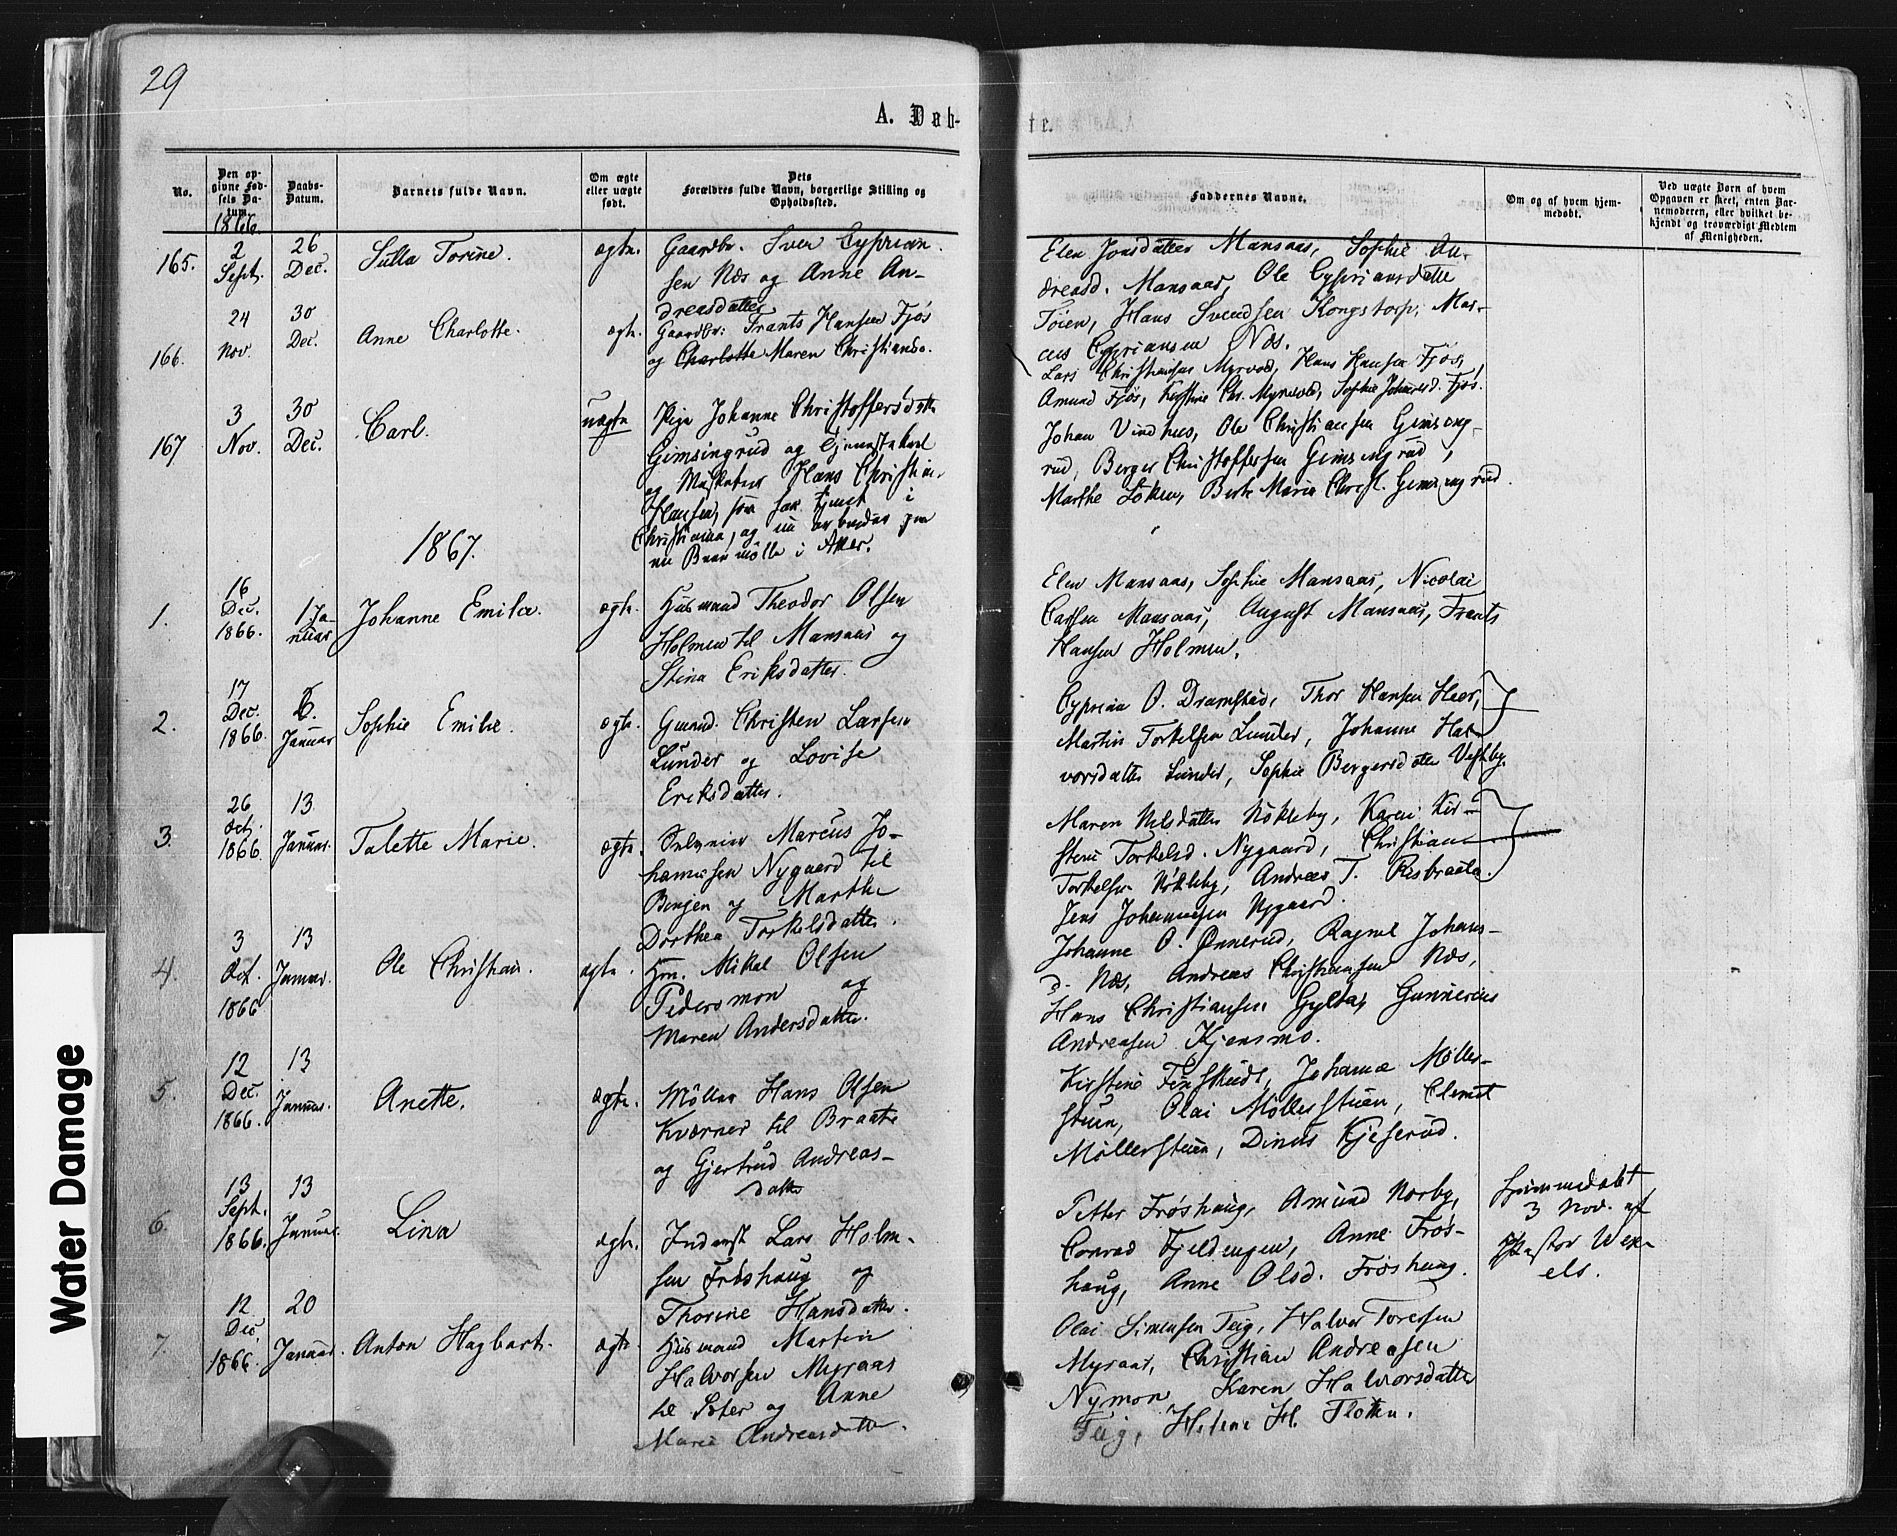 29
A. Døb-
te.
No.
Den op-
givne Fød-
sels Da-
tum.
Daabs-
Datum.
Barnets fulde Navn.
Om ægte
eller uægte
født.
Dets
Forældres fulde Navn, borgerlige Stilling og
Opholdssted.
Faddernes Navne.
Om og af hvem hjem-
medøbt.
Ved uægte Børn af hvem
Opgaven er skeet, enten Bar-
nemoderen, eller hvilket be-
kjendt og troværdigt Medlem
af Menigheden.
1866
165.
2
Sept.
26
Dec.
Julla Torine.
ægte.
Gaardbr. Sven Cyprian-
sen Næs og Anne An-
dreasdatter
Elen Jonsdatter Mansaas, Sophie An-
dreasd. Mansaas, Ole Cypriansdatte
Töien, Hans Svendsen Kongstorp, Mar-
cus Cypriansen Næs.
166.
24
Nov.
30
Dec.
Anne Charlotte.
ægte.
Gaardbr. Frants Hansen Fjøs
og Charlotte Maren Christiansd.
Lars Christiansen Myrvold, Hans Hansen Fjøs,
Amund Fjøs, Kirstine Chr. Myrvold, Sophie Johannesd. Fjøs.
167
3
Nov.
30
Dec.
Carl.
uægte
Pige Johanne Christoffersdatter
Gimsingrud og Tjenestekarl
og Hans Christian
Hansen, som har tjent i
Christiania, og nu arbeider paa
en Mølle i Aker.
Johan Vindhus, Ole Christiansen Gimsing-
rud, Berger Christoffersen Gimsingrud,
Marthe Løken, Berte Marie Christ. Gimsingrud.
1867.
1.
16
Dec.
1866.
1 Ja-
nuar
Johanne Emilie.
ægte.
Husmand Theodor Olsen
Holmen til Mansaas og
Stina Eriksdatter.
Elen Mansaas, Sophie Mansaas, Nicolai
Carlsen Mansaas, August Mansaas, Frants
Hansen Holmen.
2.
17
Dec.
1866.
6.
Januar
Sophie Emilie.
ægte.
Gmand. Christen Larsen
Lunder og Lovise
Eriksdatter.
Cyprian O. Dramstad, Thor Hansen Heer,
Martin Torkelsen Lunder, Johanne Hal-
vorsdatter Lunder, Sophie Bergersdatter Vestby.
3.
26
Oct.
1866.
13
Januar.
Talette Marie.
ægte.
Marcus Jo-
hannessen Nygaard til
Bingen og Marthe
Dorthea Torkelsdatter.
Maren Nilsdatter Nøkleby, Karen Kir-
stine Torkelsd. Nygaard, Christian
Torkelsen Nøkleby, Andreas T. Risbraata.
Jens Johannessen Nygaard.
4.
3
Oct.
1866
13
Januar.
Ole Christian.
ægte.
Hm. Mikal Olsen
Pidersmon og
Maren Andersdatter.
Johanne O. Ønnerud, Ragnel Johans-
d. Næs, Andreas Christiansen Næs,
Hans Christiansen Gylta, Gunnerius
Andreasen Kjensmo.
5.
12
Dec.
1866.
13
Januar.
Anette.
ægte.
Möller Hans Olsen
Kværner til Braate
og Gjertrud Andreas-
datter
Kirstine Finskud, Johanne Møller-
stuen, Olai Møllerstuen, Clemet
Møllerstuen, Dinus Kjeserud.
6.
13
Sept.
1866.
13
Januar.
Lina
ægte.
Inderst Lars Holm-
sen Frøshaug og
Thorine Hansdatter.
Petter Frøshaug, Amund Norby,
Conrad Fjeldengen, Anne Frøs-
haug, Anne Olsd. Frøshaug.
Hjemmedøbt
3 Nov. af
Pastor Wex-
els.
7.
12
Dec.
1866
20
Januar.
Anton Hagbart.
ægte
Husmand Martin
Halvorsen Myraas
til Sæter og Anne
Marie Andreasdatter.
Olai Simensen Teig, Halvor Toresen
Myraas, Christian Andreasen
Nymon, Karen Halvorsdatter
Teig, Helene H. Flotten.
Water Damage